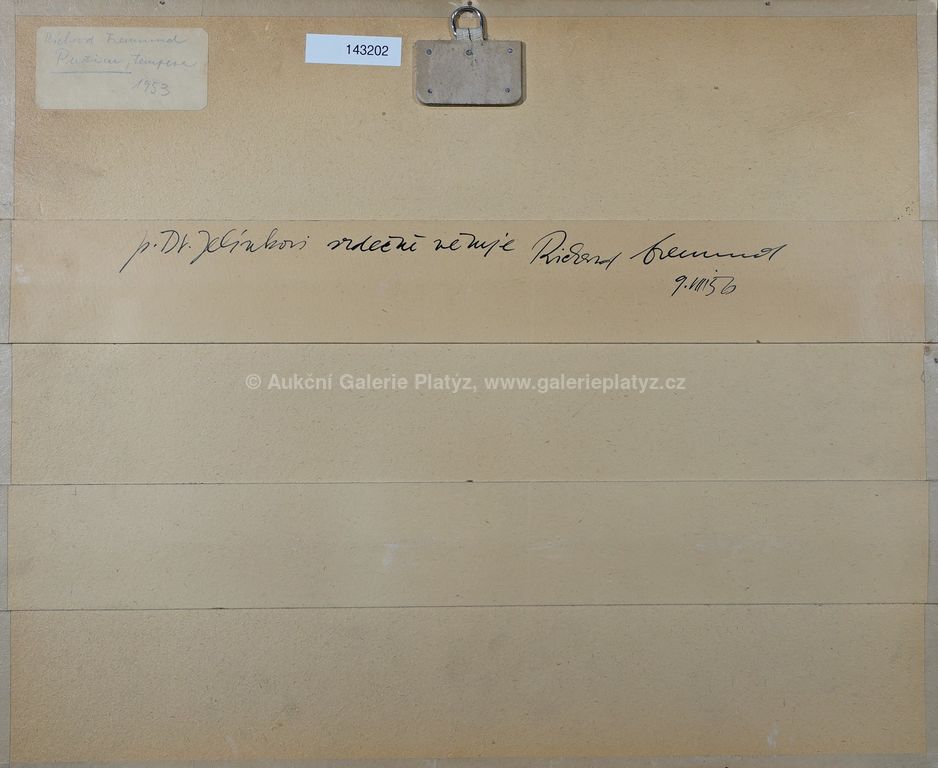 Richard Fremund
Pastvina, tempera
1953
143202
p. Dr. Jelínkovi srdečně věnuje Richard Fremund
9.VIII 56
© Aukční Galerie Platýz, www.galerieplatyz.cz